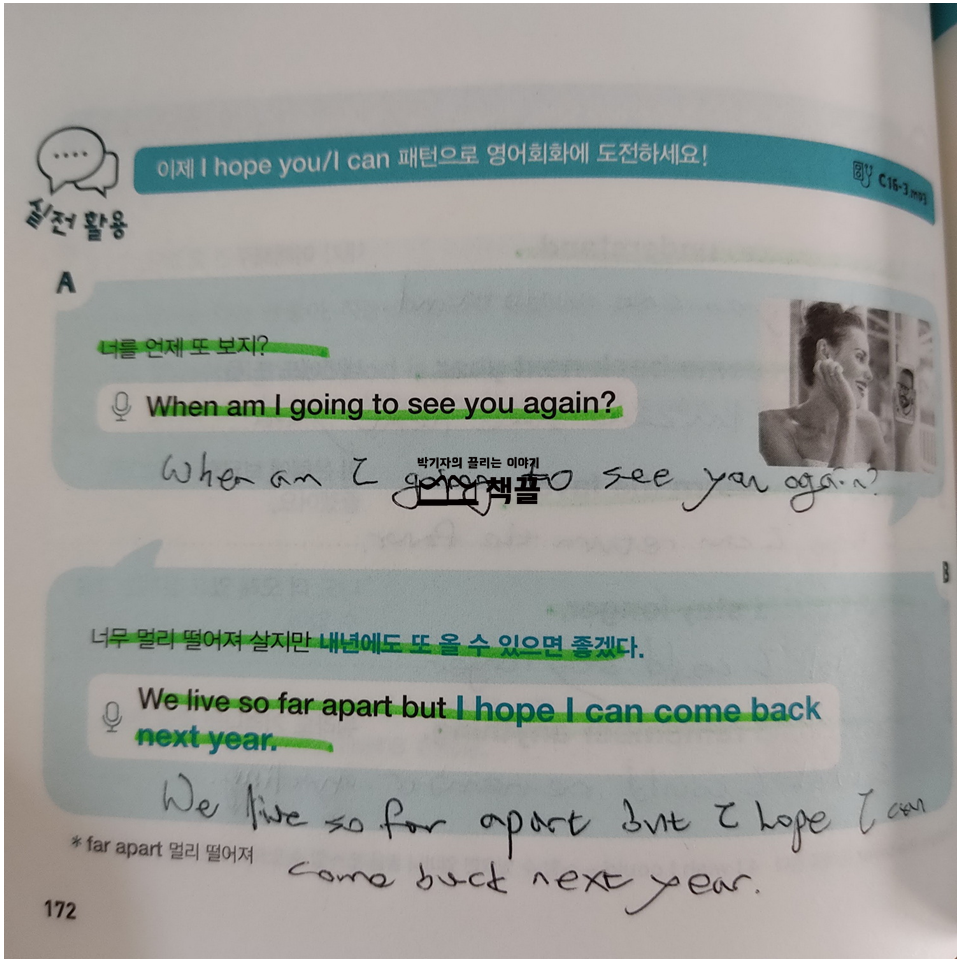 이제 I hope you/I can 패턴으로 영어회화에 도전하세요!
C16-3.mp3
실전 활용
A
너를 언제 또 보지?
When am I going to see you again?
When am I going to see you again?
박기자의 끌리는 이야기
책끌
B
너무 멀리 떨어져 살지만 내년에도 또 올 수 있으면 좋겠다.
We live so far apart but I hope I can come back
next year.
We live so far apart but I hope I can
come back next year.
* far apart 멀리 떨어져
172